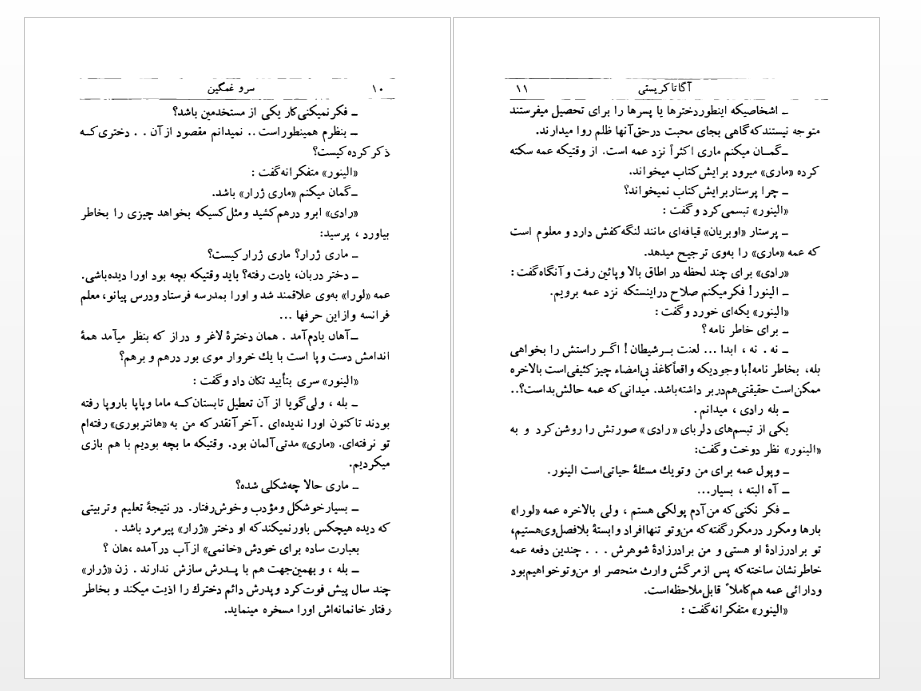 ۱۰ سرو غمگین
ـ فکر نمیکنی کار یکی از مستخدمین باشد؟
ـ بنظرم همینطور است .. نمیدانم مقصود از آن . . دختری کـه
ذکر کرده کیست؟
«الینور» متفکرانه گفت :
ـ گمان میکنم «ماری ژرار» باشد.
«رادی» ابرو درهم کشید و مثل کسیکه بخواهد چیزی را بخاطر
بیاورد ، پرسید:
ـ ماری ژرار؟ ماری ژرار کیست؟
ـ دختر دربان، یادت رفته؟ باید وقتیکه بچه بود اورا دیده باشی.
عمه «لورا» به‌وی علاقمند شد و اورا بمدرسه فرستاد و درس پیانو، معلم
فرانسه و از این حرفها ...
ـ آهان یادم آمد . همان دخترهٔ لاغر و دراز که بنظر میآمد همهٔ
اندامش دست و پا است با یك خروار موی بور درهم و برهم؟
«الینور» سری بتأیید تکان داد و گفت :
ـ بله ، ولی گویا از آن تعطیل تابستان کـه ماما و پاپا باروپا رفته
بودند تاکنون اورا ندیده‌ای . آخر آنقدر که من به «هانتربوری» رفته‌ام
تو نرفته‌ای. «ماری» مدتی آلمان بود. وقتیکه ما بچه بودیم با هم بازی
میکردیم.
ـ ماری حالا چه شکلی شده؟
ـ بسیار خوشگل و مؤدب و خوش‌رفتار. در نتیجهٔ تعلیم و تربیتی
که دیده هیچکس باور نمیکند که او دختر «ژرار» پیرمرد باشد .
بعبارت ساده برای خودش «خانمی» از آب درآمده ،هان ؟
ـ بله ، و بهمین جهت هم با پـدرش سازش ندارند . زن «ژرار»
چند سال پیش فوت کرد و پدرش دائم دخترك را اذیت میکند و بخاطر
رفتار خانمانه‌اش اورا مسخره مینماید.
آگاتا کریستی ۱۱
ـ اشخاصیکه اینطور دخترها یا پسرها را برای تحصیل میفرستند
متوجه نیستند که گاهی بجای محبت درحق آنها ظلم روا میدارند.
ـ گمـان میکنم ماری اکثراً نزد عمه است. از وقتیکه عمه سکته
کرده «ماری» میرود برایش کتاب میخواند.
ـ چرا پرستار برایش کتاب نمیخواند؟
«الینور» تبسمی کرد و گفت :
ـ پرستار «اوبریان» قیافه‌ای مانند لنگه کفش دارد و معلوم است
که عمه «ماری» را به‌وی ترجیح میدهد.
«رادی» برای چند لحظه در اطاق بالا و پائین رفت و آنگاه گفت :
ـ الینور! فکر میکنم صلاح در اینستکه نزد عمه برویم.
«الینور» یکه‌ای خورد و گفت :
ـ برای خاطر نامه ؟
ـ نه . نه ، ابدا ... لعنت بـر شیطان ! اگـر راستش را بخواهی
بله، بخاطر نامه!با وجودیکه واقعاً کاغذ بی‌امضاء چیز کثیفی است بالاخره
ممکن است حقیقتی هم دربر داشته باشد. میدانی که عمه حالش بد است؟..
ـ بله رادی ، میدانم .
یکی از تبسم‌های دلربای «رادی» صورتش را روشن کرد و به
«الینور» نظر دوخت و گفت:
ـ و پول عمه برای من و تو یك مسئلهٔ حیاتی است الینور.
ـ آه البته ، بسیار...
ـ فکر نکنی که من آدم پولکی هستم ، ولی بالاخره عمه «لورا»
بارها و مکرر در مکرر گفته که من و تو تنها افراد وابستهٔ بلافصل وی هستیم،
تو برادرزادهٔ او هستی و من برادرزادهٔ شوهرش . . . چندین دفعه عمه
خاطرنشان ساخته که پس از مرگش وارث منحصر او من و تو خواهیم بود
و دارائی عمه هم کاملاً قابل ملاحظه است.
«الینور» متفکرانه گفت :